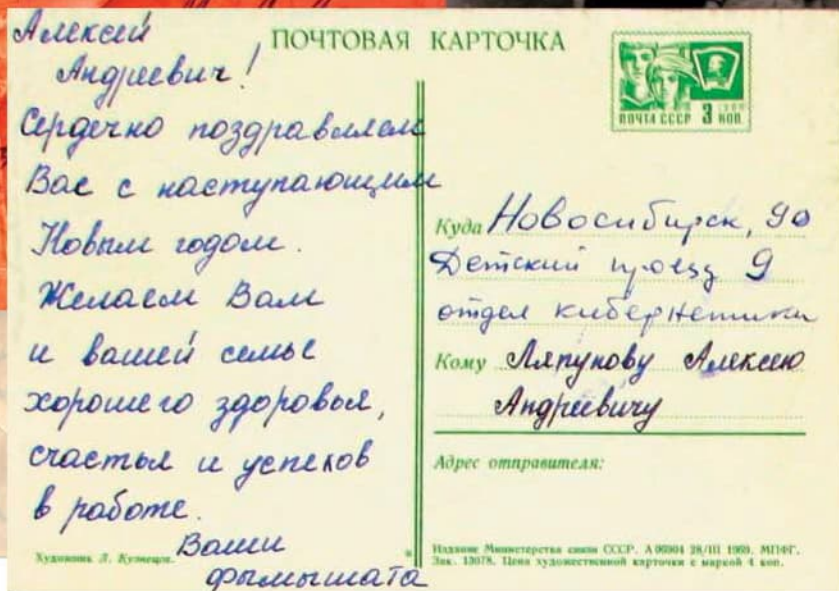 ПОЧТОВАЯ КАРТОЧКА
Алексей
Андреевич!
Сердечно поздравляем
Вас с наступающим
Новым годом.
Желаем Вам
и вашей семье
хорошего здоровья,
счастья и успехов
в работе.
Ваши
фымышата
Художник Л. Кузнецов.
ПОЧТА СССР 3 КОП.
Куда Новосибирск, 90
Детский проезд 9
отдел кибернетики
Кому Ляпунову Алексею
Андреевичу
Адрес отправителя:
Издание Министерства связи СССР. А 06904 28/III 1969. МПФГ.
Зак. 13078. Цена художественной карточки с маркой 4 коп.